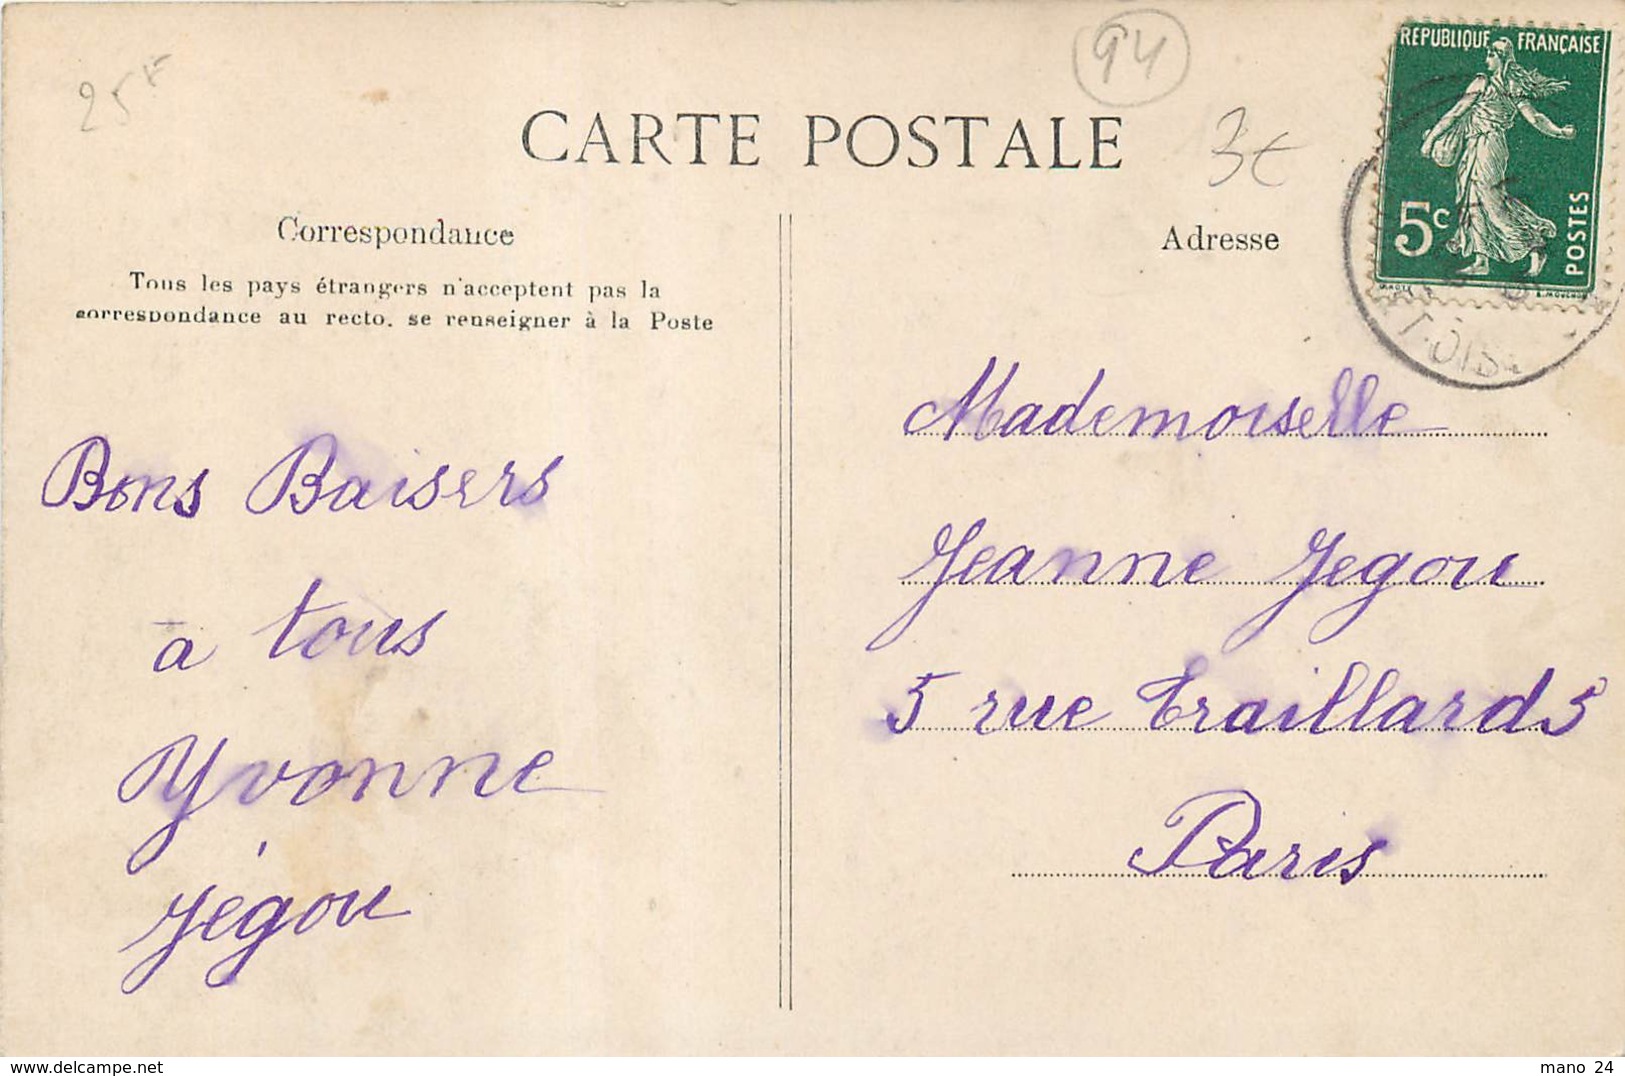 25F
94
CARTE POSTALE
3€
REPUBLIQUE FRANÇAISE
5c
POSTES
Correspondance
Tous les pays étrangers n'acceptent pas la
correspondance au recto, se renseigner à la Poste
Adresse
Bons Baisers
à tous
Yvonne
Jégou
Mademoiselle
Jeanne Jegou
5 rue Traillards
Paris
mano 24